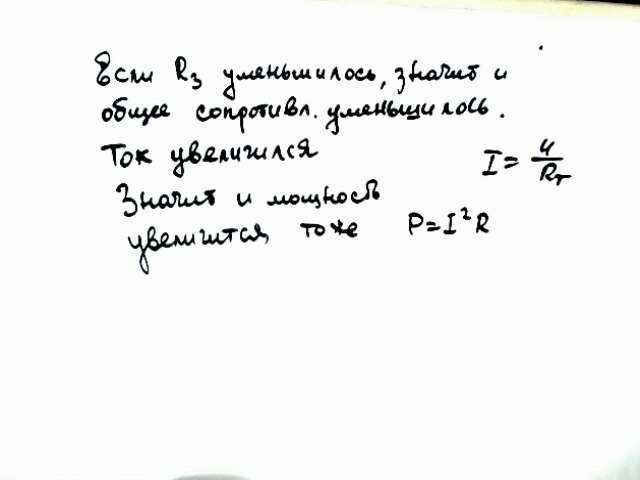 Если R₃ уменьшилось, значит и
общее сопротивл. уменьшилось.
Ток увеличился I = U/Rт
Значит и мощность
увеличится тоже P = I²R